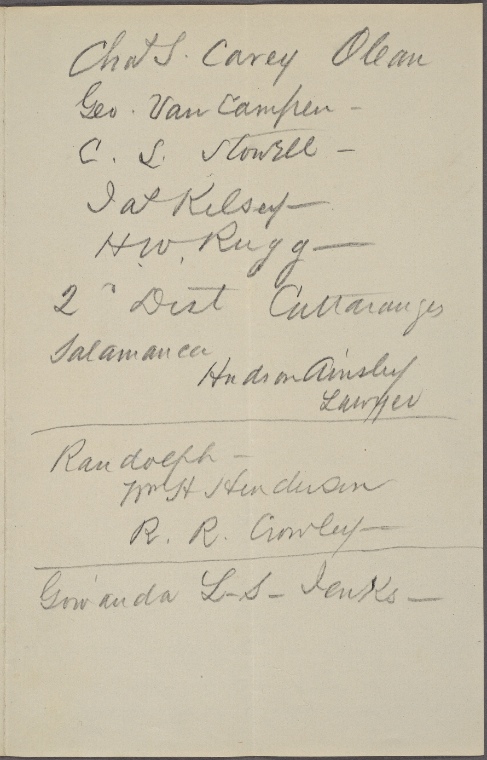 Chas S. Carey Olean
Geo. Van Campen -
C. S. Stowell -
Jas Kelsey -
H.W. Rugg -
2d Dist Cattaraugus
Salamanca
Hudson Ainsley
Lawyer
Randolph -
Wm H Henderson
R. R. Crowley -
Gowanda L-S- Jenks -